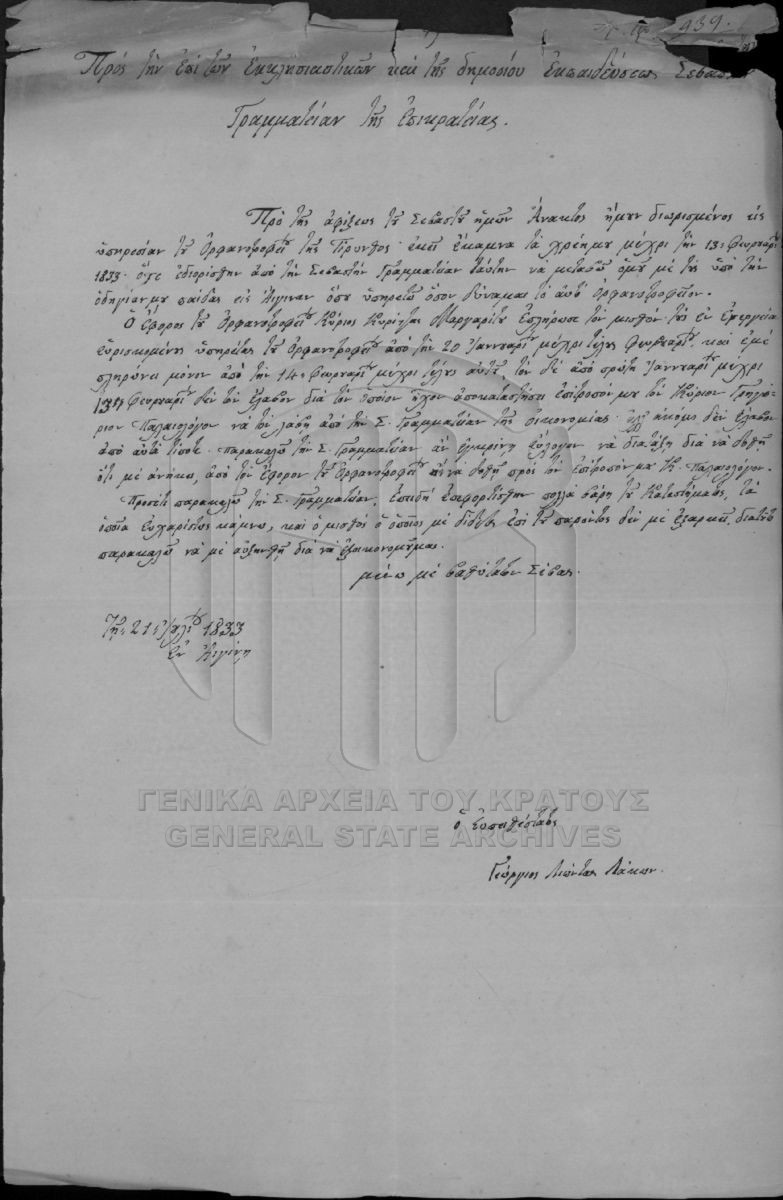 939.
Πρὸς τὴν ἐπὶ τῶν ἐκκλησιαστικῶν καὶ τῆς δημοσίου ἐκπαιδεύσεως Σεβασ
Γραμματείαν τῆς Ἐπικρατείας.
Πρὸ τῆς ἀφίξεως τοῦ Σεβαστοῦ ἡμῶν Ἄνακτος ἤμουν διωρισμένος εἰς
ὑπηρεσίαν τοῦ Ὀρφανοτροφείου τῆς Τίρυνθος· ἐκεῖ ἔκαμνα τὰ χρέη μου μέχρι τὴν 13 Φευρουαρίου
1833. ὅτε ἐδιορίσθην ἀπὸ τὴν Σεβαστὴν Γραμματείαν ταύτην να μεταβῶ ὁμοῦ μὲ τοὺς ὑπὸ τὴν
ὁδηγίαν μου παῖδας εἰς Αἴγιναν ὅπου ὑπηρετῶ ὅσον δύναμαι τὸ αὐτὸ ὀρφανοτροφεῖον.
Ὁ Ἔφορος τοῦ Ὀρφανοτροφείου Κύριος Μαργαρίτου ἐπλήρωσε τὸν μισθὸν τῆς ἐν ἐνεργείᾳ
εὑρισκομένης ὑπηρεσίας τοῦ Ὀρφανοτροφείου ἀπὸ τὴν 20 Ἰαννουαρίου μέχρι τέλους Φευρουαρίου, καὶ ἐμὲ
πληρώνει μόνον ἀπὸ τὴν 14 Φευρουαρίου μέχρι τέλους αὐτοῦ, τὸν δὲ ἀπὸ πρώτη Ἰαννουαρίου μέχρι
13 Φευρουαρίου δὲν τὸν ἔλαβον διὰ τὸν ὁποῖον ἦχον ἀποκαταστήσει ἐπίτροπόν μου τὸν Κύριον Γρηγό-
ριον Παλαιολόγον νὰ τὸν λάβῃ ἀπὸ τὴν Σ. Γραμματείαν τῆς οἰκονομίας· ἀλλ' ἀκόμη δὲν ἔλαβον
ἀπὸ αὐτὰ τίποτε. παρακαλῶ τὴν Σ. Γραμματείαν ἂν ἐγκρίνῃ εὔλογον νὰ διατάξῃ διὰ νὰ δοθῇ
ὅτι μὲ ἀνήκει, ἀπὸ τὸν ἔφορον τοῦ Ὀρφανοτροφείου ἢ νὰ δοθῇ πρὸς τὸν ἐπίτροπόν μου Κ. Παλαιολόγον.
Προσέτι παρακαλῶ τὴν Σ. Γραμματείαν, ἐπειδὴ ἐπιφορτίσθην πολλὰ βάρη τοῦ Καταστήματος, τὰ
ὁποῖα εὐχαρίστως κάμνω, καὶ ὁ μισθὸς ὁ ὁποῖος μὲ δίδεται ἐπὶ τοῦ παρόντος δὲν μὲ ἐξαρκεῖ, διὰ τοῦτο
παρακαλῶ νὰ μὲ αὐξηνθῇ διὰ νὰ ἐξοικονομοῦμαι.
μένω μὲ βαθύτατον Σέβας.
Τῇ 21 Ἀπριλίου 1833
Ἐν Αἰγίνῃ
ΓΕΝΙΚΑ ΑΡΧΕΙΑ ΤΟΥ ΚΡΑΤΟΥΣ
GENERAL STATE ARCHIVES
ὁ Εὐπειθέστατος
Γεώργιος Λάκων.